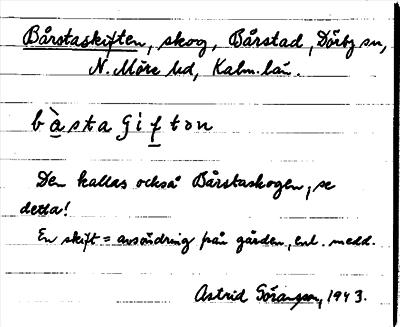 Bårstaskiften, skog, Bårstad, Dörby sn,
N. Möre hd, Kalm. län.
bàstaʃifton
Den kallas också Bårstaskogen, se
detta!
En skift = avsöndring från gården, enl. medd.
Astrid Göransson, 1943.